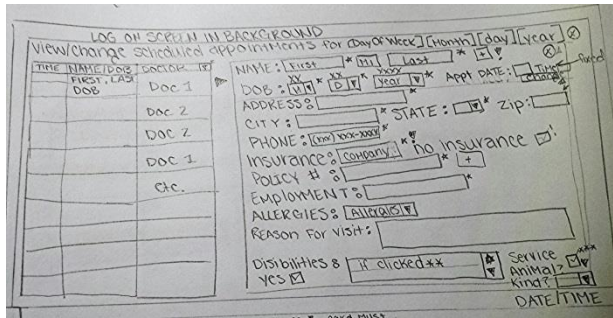 LOG ON SCREEN IN BACKGROUND
View/change scheduled appointments for [Day of Week] [Month] [day] [year] X
TIME NAME/DOB DOCTOR
FIRST, LAST
DOB
DOC 1
DOC 2
DOC 2
DOC 1
etc.
NAME: First * MI Last * +
DOB: XX M * XX D * XXXX Year * Appt DATE: Time
ADDRESS:
CITY: * STATE: * Zip:
PHONE: (xxx) xxx-xxxx *
Insurance: Company * no insurance
POLICY #: * +
EMPLOYMENT: *
ALLERGIES: Allergies
REASON FOR VISIT:
Disibilities: if clicked **
yes
Service ***
Animal?
Kind?
DATE/TIME